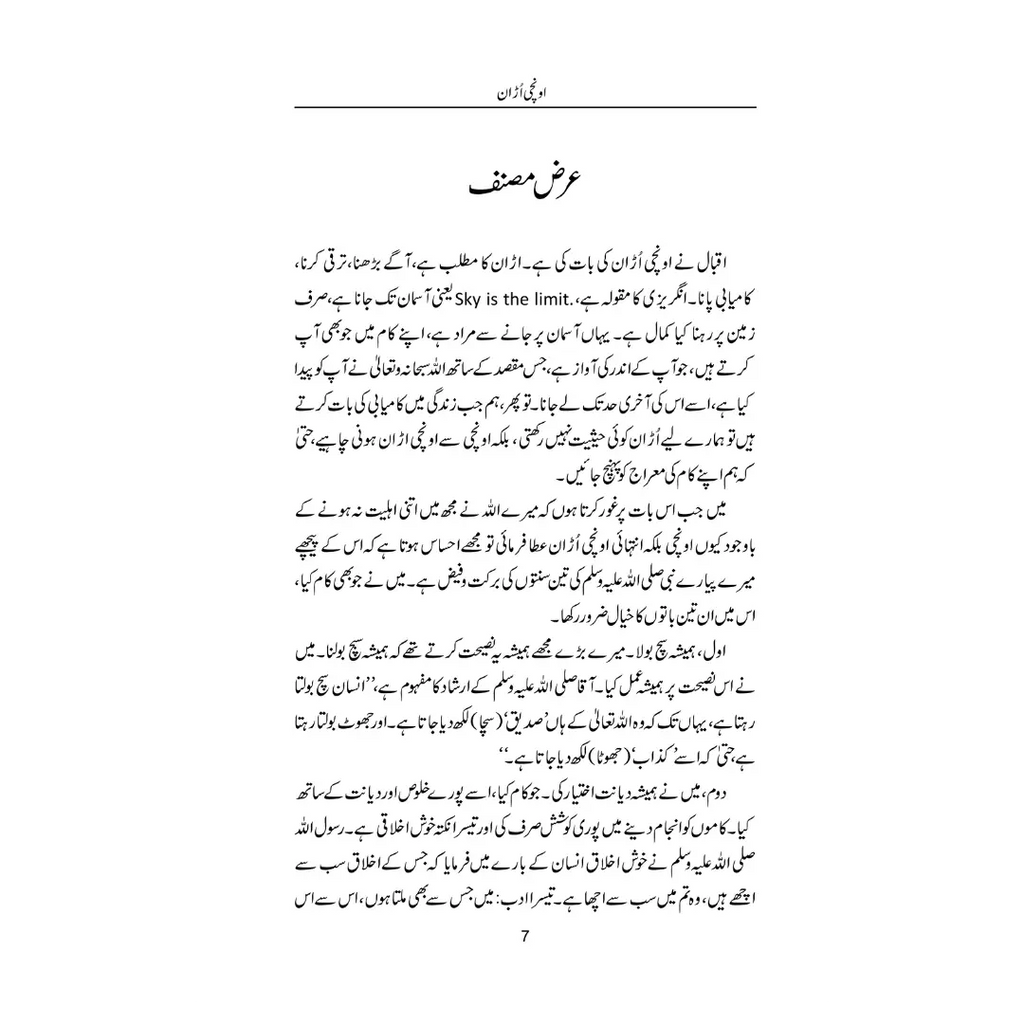 اونچی اُڑان
عرض مصنف
اقبال نے اونچی اُڑان کی بات کی ہے۔ اڑان کا مطلب ہے، آگے بڑھنا، ترقی کرنا،
کامیابی پانا۔ انگریزی کا مقولہ ہے، Sky is the limit. یعنی آسمان تک جانا ہے، صرف
زمین پر رہنا کیا کمال ہے۔ یہاں آسمان پر جانے سے مراد ہے، اپنے کام میں جو بھی آپ
کرتے ہیں، جو آپ کے اندر کی آواز ہے، جس مقصد کے ساتھ اللہ سبحانہ وتعالیٰ نے آپ کو پیدا
کیا ہے، اسے اس کی آخری حد تک لے جانا۔ تو پھر، ہم جب زندگی میں کامیابی کی بات کرتے
ہیں تو ہمارے لیے اُڑان کوئی حیثیت نہیں رکھتی، بلکہ اونچی سے اونچی اڑان ہونی چاہیے، حتیٰ
کہ ہم اپنے کام کی معراج کو پہنچ جائیں۔
میں جب اس بات پر غور کرتا ہوں کہ میرے اللہ نے مجھ میں اتنی اہلیت نہ ہونے کے
باوجود کیوں اونچی بلکہ انتہائی اونچی اُڑان عطا فرمائی تو مجھے احساس ہوتا ہے کہ اس کے پیچھے
میرے پیارے نبی صلی اللہ علیہ وسلم کی تین سنتوں کی برکت و فیض ہے۔ میں نے جو بھی کام کیا،
اس میں ان تین باتوں کا خیال ضرور رکھا۔
اول، ہمیشہ سچ بولا۔ میرے بڑے مجھے ہمیشہ یہ نصیحت کرتے تھے کہ ہمیشہ سچ بولنا۔ میں
نے اس نصیحت پر ہمیشہ عمل کیا۔ آقا صلی اللہ علیہ وسلم کے ارشاد کا مفہوم ہے، ’’انسان سچ بولتا
رہتا ہے، یہاں تک کہ وہ اللہ تعالیٰ کے ہاں ’صدیق‘ (سچا) لکھ دیا جاتا ہے۔ اور جھوٹ بولتا رہتا
ہے، حتیٰ کہ اسے ’کذاب‘ (جھوٹا) لکھ دیا جاتا ہے۔‘‘
دوم، میں نے ہمیشہ دیانت اختیار کی۔ جو کام کیا، اسے پورے خلوص اور دیانت کے ساتھ
کیا۔ کاموں کو انجام دینے میں پوری کوشش صرف کی اور تیسرا نکتہ خوش اخلاقی ہے۔ رسول اللہ
صلی اللہ علیہ وسلم نے خوش اخلاق انسان کے بارے میں فرمایا کہ جس کے اخلاق سب سے
اچھے ہیں، وہ تم میں سب سے اچھا ہے۔ تیسرا ادب: میں جس سے بھی ملتا ہوں، اس سے اس
7